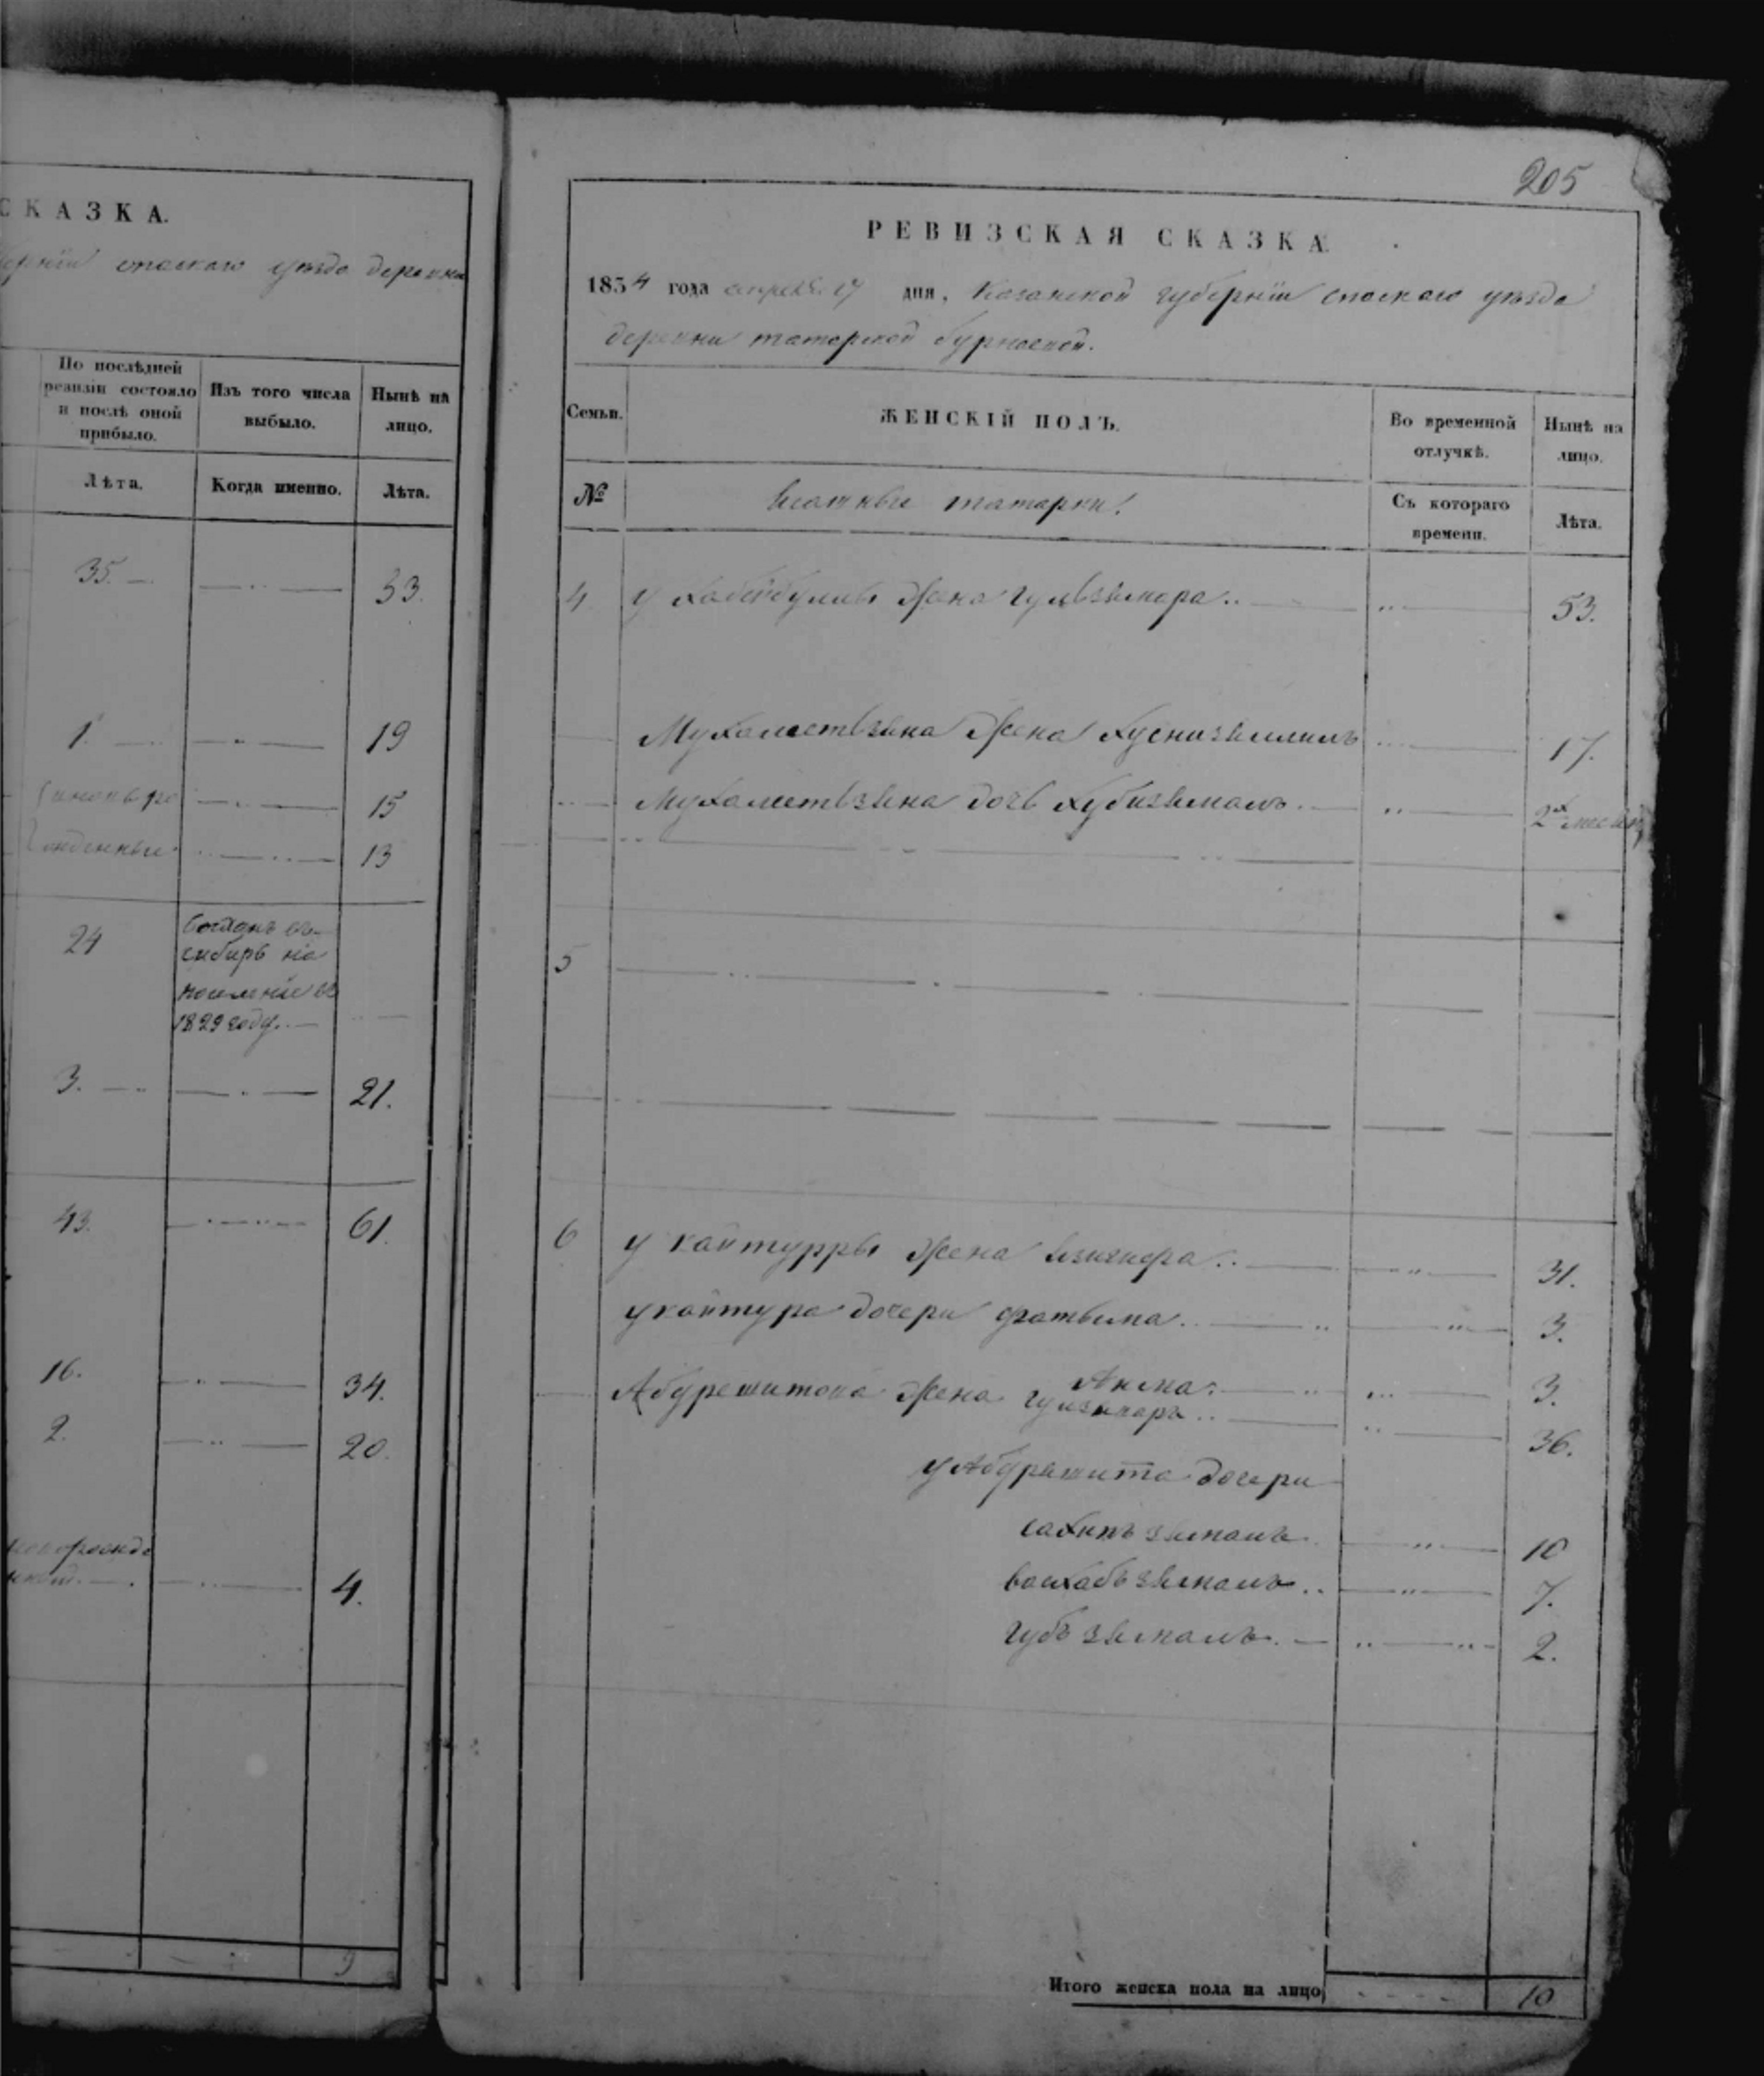 СКАЗКА.
спаскаго уезда деревни
По послѣдней
ревизіи состояло
и послѣ оной
прибыло.
Изъ того числа
выбыло.
Нынѣ на
лицо.
Лѣта.
Когда именно.
Лѣта.
35.
53.
1.
19
15
13
24
сосланъ въ
сибирь на
1829 году.
3.
21.
43.
61.
16.
34.
2.
20.
4.
9
205
РЕВИЗСКАЯ СКАЗКА.
1834 года апреля 17 дня, Казанской губерніи спаскаго уезда
деревни татарской бурнаевой.
Семьи.
ЖЕНСКІЙ ПОЛЪ.
Во временной
отлучкѣ.
Нынѣ на
лицо.
№
татарки.
Съ котораго
времени.
Лѣта.
4 у хабибуллы жена гульзямара 53.
Мухаметьзяна жена хуснизямиль 17.
Мухаметьзяна дочь хубизямаль 2х
5
6 у кантурры жена 31.
у кантура дочери фатьима 3.
Амина 3.
Абдрешитова жена гульзямара 36.
у Абдрешита дочери
сахипъ зямаль 10
вахабъ зямаль 7.
губъ зямаль 2.
Итого женска пола на лицо 10